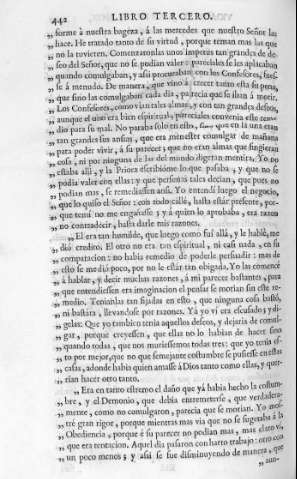 442 LIBRO TERCERO.
„ forme à nuestra bageza, á las mercedes que nuestro Señor las
„ hace. He tratado tanto de su virtud, porque teman mas las que
„ no la tuvieren. Comenzaronles unos impetus tan grandes de de-
„ seo del Señor, que no se podian valer: pareciales se les aplacaban
„ quando comulgaban, y assi procuraban con los Confesores, fues-
„ se à menudo. De manera, que vino à crecer tanto esta su pena,
„ que sino las comulgaban cada dia, parecia que se iban á morir.
„ Los Confesores, como vian tales almas, y con tan grandes deseos,
„ aunque el uno era bien espiritual, pareciales convenia este reme-
„ dio para su mal. No paraba solo en esto, sino que en la una eran
„ tan grandes sus ansias, que era menester comulgar de mañana
„ para poder vivir, á su parecer; que no eran almas que fingieran
„ cosa, ni por ninguna de las del mundo digeran mentira. Yo no
„ estaba allí, y la Priora escribióme lo que pasaba, y que no se
„ podia valer con ellas: y que personas tales decian, que pues no
„ podian mas, se remediassen ansi. Yo entendí luego el negocio,
„ que lo quiso el Señor: con todo callè, hasta estár presente, por-
„ que temí no me engañasse; y á quien lo aprobaba, era razon
„ no contradecir, hasta darle mis razones.
„ El era tan humilde, que luego como fuí allá, y le hablè, me
„ dió credito. El otro no era tan espiritual, ni casi nada, en su
„ comparacion: no habia remedio de poderle persuadir: mas de
„ esto se me dió poco, por no le estár tan obligada. Yo las comencè
„ á hablar, y decir muchas razones, á mi parecer bastantes, para
„ que entendiessen era imaginacion el pensar se morian sin este re-
„ medio. Teníanlas tan fijadas en esto, que ninguna cosa bastó,
„ ni bastára, llevandose por razones. Yá yo vi era escusado, y dí-
„ gelas: Que yo tambien tenia aquellos deseos, y dejaria de comul-
„ gar, porque creyessen, que ellas no lo habian de hacer sino
„ quando todas, que nos muriessemos todas tres: que yo tenia es-
„ to por mejor, que no que semejante costumbre se pusiesse en estas
„ casas, adonde habia quien amasse à Dios tanto como ellas, y quer-
„ rian hacer otro tanto.
„ Era en tanto estremo el daño que yá habia hecho la costum-
„ bre, y el Demonio, que debia entremeterse, que verdadera-
„ mente, como no comulgaron, parecia que se morian. Yo mos-
„ tré gran rigor, porque mientras mas via que no se sugetaba á la
„ Obediencia, porque à su parecer no podian mas, mas claro ví,
„ que era tentacion. Aquel dia pasaron con harto trabajo: otro con
„ un poco menos; y assi se fue disminuyendo de manera, que
„ aun-